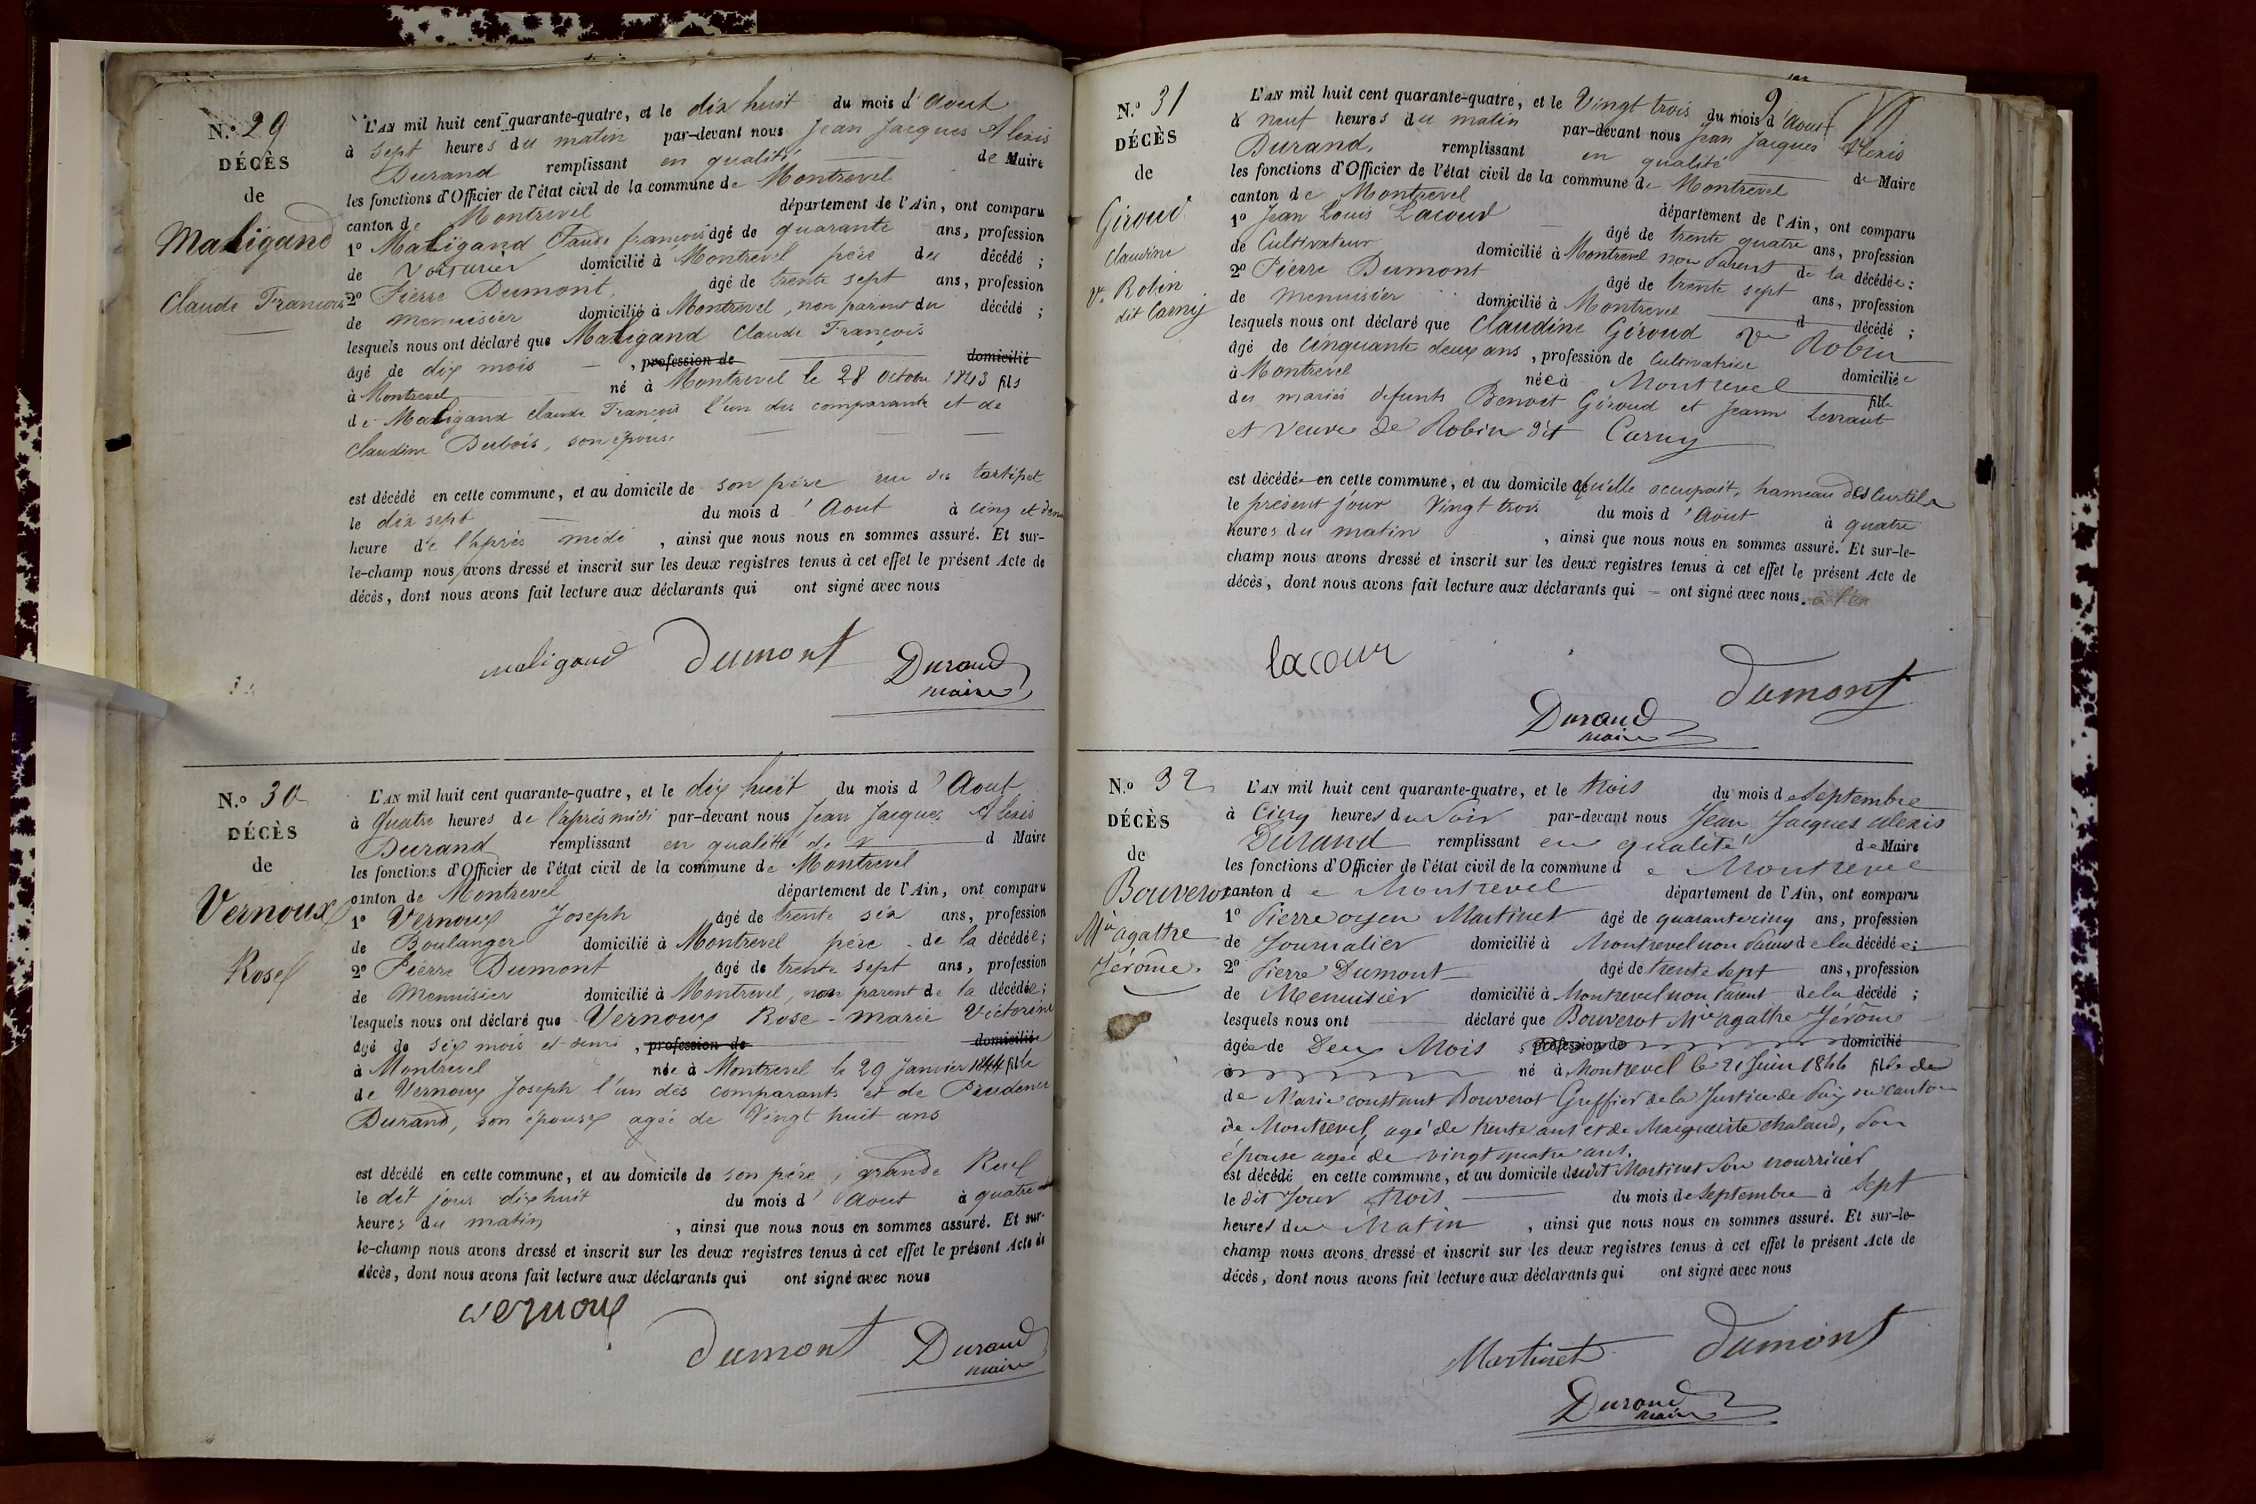 N.º 29
DÉCÈS
de
Maligand
Claude François
L'AN mil huit cent quarante-quatre, et le dix huit du mois d'Aout
à sept heures du matin par-devant nous Jean Jacques Alexis
Durand remplissant en qualité de Maire
les fonctions d'Officier de l'état civil de la commune de Montrevel
canton de Montrevel département de l'Ain, ont comparu
1º Maligand Claude françois âgé de quarante ans, profession
de Voiturier domicilié à Montrevel père du décédé ;
2º Pierre Dumont, âgé de trente sept ans, profession
de menuisier domicilié à Montrevel, non parent du décédé ;
lesquels nous ont déclaré que Maligand Claude François
âgé de dix mois , profession de domicilié
à Montrevel né à Montrevel le 28 Octobre 1843 fils
de Maligand Claude François l'un des comparants et de
Claudine Dubois, son épouse
est décédé en cette commune, et au domicile de son père rue des
le dix sept du mois d'Aout à cinq et demi
heure de l'après midi , ainsi que nous nous en sommes assuré. Et sur-
le-champ nous avons dressé et inscrit sur les deux registres tenus à cet effet le présent Acte de
décès, dont nous avons fait lecture aux déclarants qui ont signé avec nous
maligand Dumont Durand
maire
N.º 30
DÉCÈS
de
Vernoux
Rose
L'AN mil huit cent quarante-quatre, et le dix huit du mois d'Aout
à quatre heures de l'après midi par-devant nous Jean Jacques Alexis
Durand remplissant en qualité de d Maire
les fonctions d'Officier de l'état civil de la commune de Montrevel
canton de Montrevel département de l'Ain, ont comparu
1º Vernoux Joseph âgé de trente six ans, profession
de Boulanger domicilié à Montrevel père de la décédée ;
2º Pierre Dumont âgé de trente sept ans, profession
de Menuisier domicilié à Montrevel, non parent de la décédée ;
lesquels nous ont déclaré que Vernoux Rose-marie Victorine
âgé de six mois et demi , profession de domicilié
à Montrevel née à Montrevel le 29 Janvier 1844 fille
de Vernoux Joseph l'un des comparants et de Prudence
Durand, son épouse agée de Vingt huit ans
est décédé en cette commune, et au domicile de son père, grande Rue
le dit jour dix huit du mois d'Aout à quatre
heures du matin , ainsi que nous nous en sommes assuré. Et sur-
le-champ nous avons dressé et inscrit sur les deux registres tenus à cet effet le présent Acte de
décès, dont nous avons fait lecture aux déclarants qui ont signé avec nous
vernoux
Dumont Durand
maire
N.º 31
DÉCÈS
de
Giroud
Claudine
Ve Robin
dit Carny
L'AN mil huit cent quarante-quatre, et le Vingt trois du mois d'Aout
à neuf heures du matin par-devant nous Jean Jacques Alexis
Durand, remplissant en qualité de Maire
les fonctions d'Officier de l'état civil de la commune de Montrevel
canton de Montrevel département de l'Ain, ont comparu
1º Jean Louis Lacour âgé de trente quatre ans, profession
de Cultivateur domicilié à Montrevel non Parent de la décédée ;
2º Pierre Dumont âgé de trente sept ans, profession
de menuisier domicilié à Montrevel d décédé ;
lesquels nous ont déclaré que Claudine Giroud Ve Robin
âgé de Cinquante deux ans , profession de Cultivatrice domiciliée
à Montrevel née à Montrevel fille
des mariés defunts Benoit Giroud et Jeanne
et Veuve de Robin dit Carny
est décédée en cette commune, et au domicile qu'elle occupait, hameau des
le présent jour Vingt trois du mois d'Aout à quatre
heures du matin , ainsi que nous nous en sommes assuré. Et sur-le-
champ nous avons dressé et inscrit sur les deux registres tenus à cet effet le présent Acte de
décès, dont nous avons fait lecture aux déclarants qui ont signé avec nous.
lacour
Dumont
Durand
maire
N.º 32
DÉCÈS
de
Bouverot
Mie Agathe
Jérôme.
L'AN mil huit cent quarante-quatre, et le trois du mois de Septembre
à Cinq heures du Soir par-devant nous Jean Jacques alexis
Durand remplissant en qualité de Maire
les fonctions d'Officier de l'état civil de la commune de Montrevel
canton de Montrevel département de l'Ain, ont comparu
1º Pierre Martinet âgé de quarante cinq ans, profession
de Journalier domicilié à Montrevel non Parent de la décédée ;
2º Pierre Dumont âgé de trente sept ans, profession
de Menuisier domicilié à Montrevel non Parent de la décédé ;
lesquels nous ont déclaré que Bouverot Mie Agathe Jérôme
âgée de Deux Mois , profession de domicilié
à né à Montrevel le 21 Juin 1844 fille de
de Marie constant Bouverot Greffier de la Justice de Paix du Canton
de Montrevel, agé de trente ans et de Marguerite chaland, Son
épouse agée de vingt quatre ans.
est décédé en cette commune, et au domicile dudit Martinet Son nourricier
le dit Jour trois du mois de Septembre à Sept
heures du Matin , ainsi que nous nous en sommes assuré. Et sur-le-
champ nous avons dressé et inscrit sur les deux registres tenus à cet effet le présent Acte de
décès, dont nous avons fait lecture aux déclarants qui ont signé avec nous
Martinet Dumont
Durand
maire